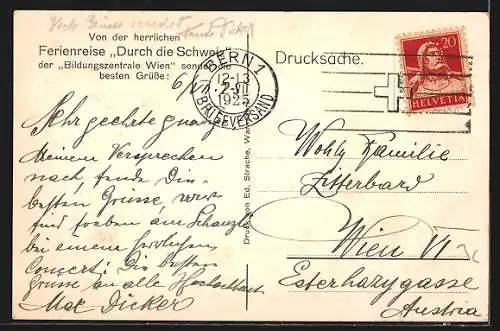 Viele Grüsse sendet
Fande Dicker
Von der herrlichen
Ferienreise „Durch die Schweiz"
der „Bildungszentrale Wien" sendet die
besten Grüße:
6/VII.
BERN 1
12-13
7.VII
1925
BRIEFVERSAND
Drucksache.
20
HELVETIA
Sehr geehrte
Meinem Versprechen
nach, sende Ihnen
besten Grüsse, wir
sind soeben am Schänzli
bei einem herrlichen
Concert: Die besten
Grüsse an alle
Max Dicker
Druck von Ed. Strache,
Wohlg Familie
Zitterbard
Wien VI
Esterhazygasse
Austria